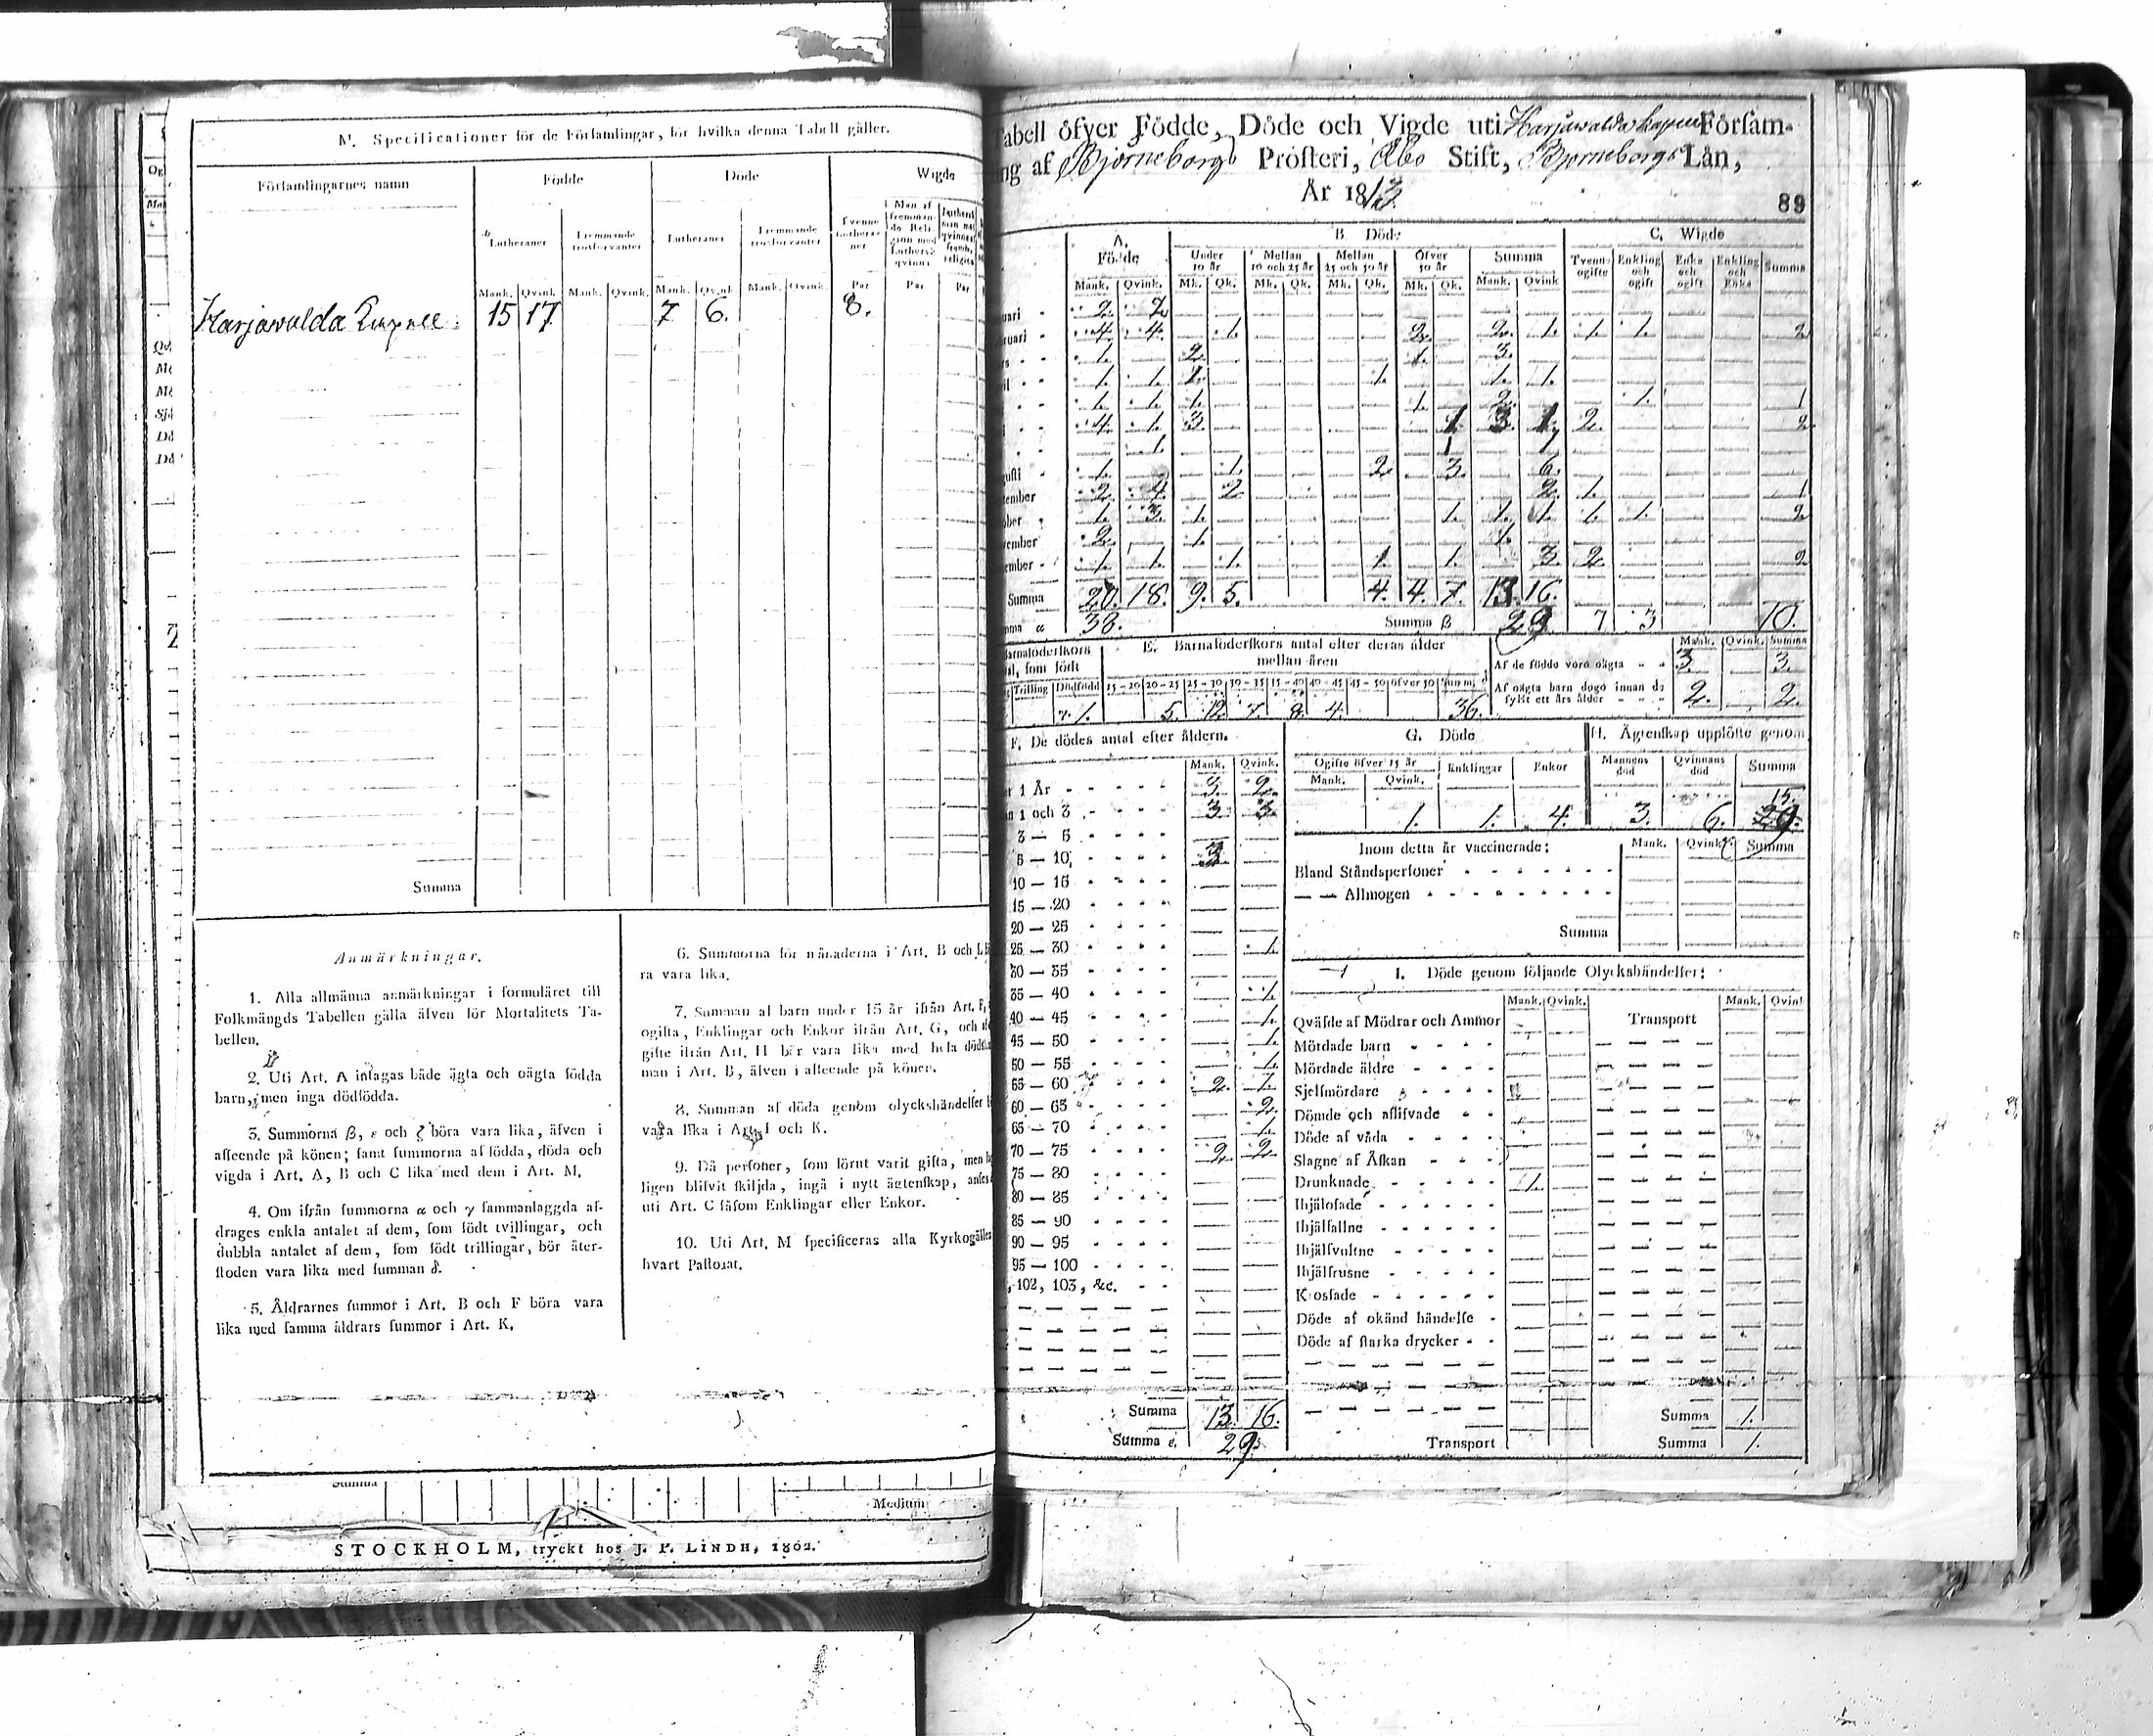 M. Specificationer för de Församlingar, för hvilka denna Tabell gäller.
Församlingarnes namn
Födde
Döde
Wigde
Lutheraner
Fremmande trosförvanter
Lutheraner
Fremmande trosförvanter
Tvenne Lutheraner
Mank. Qvink. Mank. Qvink. Mank. Qvink. Mank. Qvink. Par Par Par
Harjawalda Capell 15 17 7 6. 8.
Summa
Anmärkningar.
1. Alla allmänna anmärkningar i formuläret till
Folkmängds Tabellen gälla äfven för Mortalitets Ta-
bellen.
2. Uti Art. A intagas både ägta och oägta födda
barn, men inga dödfödda.
3. Summorna ß, ε och ζ böra vara lika, äfven i
afseende på könen; samt summorna af födda, döda och
vigda i Art. A, B och C lika med dem i Art. M.
4. Om ifrån summorna α och γ sammanlaggda af-
drages enkla antalet af dem, som födt tvillingar, och
dubbla antalet af dem, som födt trillingar, bör åter-
stoden vara lika med summan δ.
5. Åldrarnes summor i Art. B och F böra vara
lika med samma åldrars summor i Art. K.
6. Summorna för månaderna i Art. B och
ra vara lika.
7. Summan af barn under 15 år ifrån Art. F,
ogifta, Enklingar och Enkor ifrån Art. G, och
gifte ifrån Art. H bör vara lika med hela
man i Art. B, äfven i afseende på könen.
8. Summan af döda genom olyckshändelser
vara lika i Art. I och K.
9. Då personer, som förut varit gifta, men
ligen blifvit skiljda, ingå i nytt ägtenskap,
uti Art. C såsom Enklingar eller Enkor.
10. Uti Art. M specificeras alla
hvart Pastorat.
Summa
Medium
STOCKHOLM, tryckt hos J. P. LINDH, 1802.
Tabell öfver Födde, Döde och Vigde uti Harjawalda Capell Försam-
ing af Björneborgs Prosteri, Åbo Stift, Björneborgs Län,
År 1813.
89
A. Födde
B. Döde
C. Wigde
Under 10 år
Mellan 10 och 25 år
Mellan 25 och 50 år
Öfver 50 år
Summa
Tvenne ogifte
Enkling och ogift
Enka och ogift
Enkling och Enka
Summa
Mank. Qvink. Mk. Qk. Mk. Qk. Mk. Qk. Mk. Qk. Mank. Qvink
uari 2. 2
ruari 4. 4. 1. 2. 2. 1. 1. 1. 2
rs 1. 2. 1. 3.
il 1. 1. 1. 1. 1. 1.
1. 1. 1. 1. 2. 1. 1
4. 1. 3. 1. 3. 1. 2. 2
1 1 1
gusti 1. 1. 2. 3. 6.
tember 2. 4. 2 2. 1. 1
ober 1. 3. 1. 1. 1. 1. 1. 1. 2
vember 2. 1. 1.
ember 1. 1. 1. 1. 1. 3. 2 2
Summa 20. 18. 9. 5. 4. 4. 7. 13. 16.
mma α 38. Summa ß 29 7 3 10.
Barnaföderskors
al, som födt
E. Barnaföderskors antal efter deras ålder
mellan åren
Mank. Qvink. Summa
Af de födde voro oägta 3. 3.
Af oägta barn dogo innan de
fyllt ett års ålder 2. 2.
Trilling Dödfödd 15-20 20-25 25-30 30-35 35-40 40-45 45-50 öfver 50
1. 5. 12. 7. 8. 4. 36.
F. De dödes antal efter åldern.
Mank. Qvink.
r 1 År 3. 2.
n 1 och 3 3. 3.
3 — 5
5 — 10 3
10 — 15
15 — 20
20 — 25
25 — 30 1.
30 — 35
35 — 40 1.
40 — 45 1.
45 — 50 1.
50 — 55 1.
55 — 60 2. 1.
60 — 65 2.
65 — 70 1.
70 — 75 2. 2.
75 — 80
80 — 85
85 — 90
90 — 95
95 — 100
, 102, 103, &c.
Summa 13. 16.
Summa ε. 29.
G. Döde
Ogifte öfver 15 år
Enklingar
Enkor
Mank. Qvink.
1. 1. 4.
H. Ägtenskap upplöste genom
Mannens död
Qvinnans död
Summa
15.
3. 6.
Inom detta år vaccinerade: Mank. Qvink. Summa
Bland Ståndspersoner
— — Allmogen
Summa
I. Döde genom följande Olyckshändelser:
Mank. Qvink. Mank. Qvink
Qväfde af Mödrar och Ammor Transport
Mördade barn
Mördade äldre
Sjelfmördare
Dömde och aflifvade
Döde af våda
Slagne af Åskan
Drunknade 1.
Ihjälosade
Ihjälfallne
Ihjälsvultne
Ihjälfrusne
Krossade
Döde af okänd händelse
Döde af starka drycker
Summa 1.
Transport Summa 1.